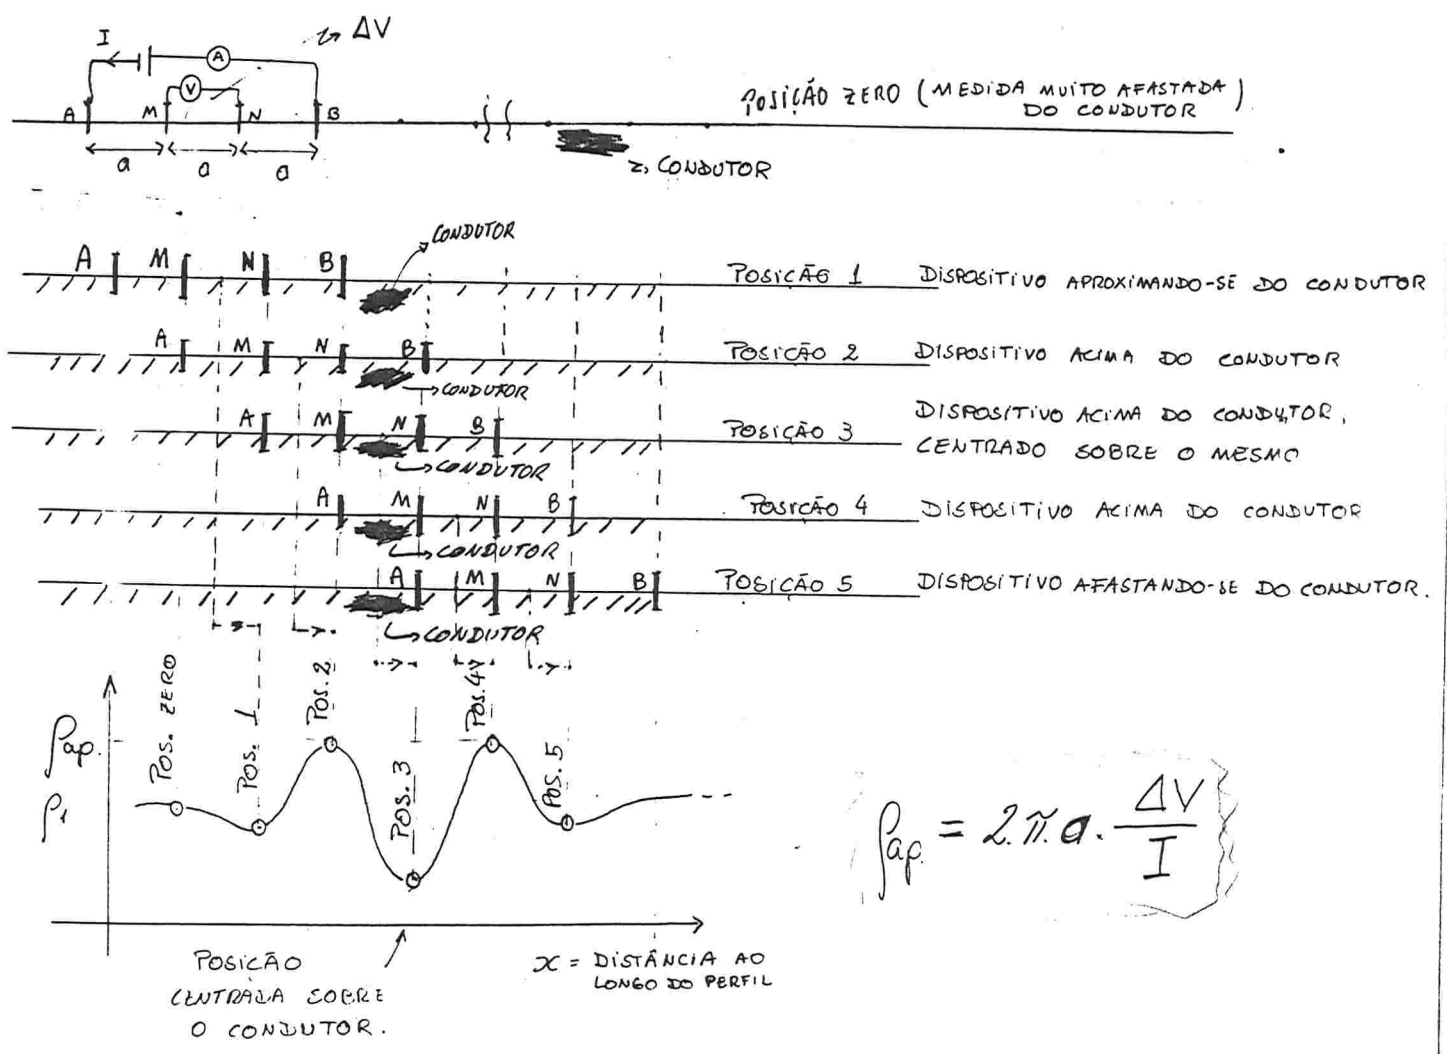 ΔV
I
A
V
A M N B
a a a
POSIÇÃO ZERO (MEDIDA MUITO AFASTADA)
DO CONDUTOR
CONDUTOR
CONDUTOR
A M N B
POSIÇÃO 1 DISPOSITIVO APROXIMANDO-SE DO CONDUTOR
A M N B
POSIÇÃO 2 DISPOSITIVO ACIMA DO CONDUTOR
CONDUTOR
A M N B
POSIÇÃO 3 DISPOSITIVO ACIMA DO CONDUTOR,
CENTRADO SOBRE O MESMO
CONDUTOR
A M N B
POSIÇÃO 4 DISPOSITIVO ACIMA DO CONDUTOR
CONDUTOR
A M N B
POSIÇÃO 5 DISPOSITIVO AFASTANDO-SE DO CONDUTOR.
CONDUTOR
ρap.
ρ1
POS. ZERO
POS. 1
POS. 2
POS. 3
POS. 4
POS. 5
ρap. = 2.π.a. ΔV/I
POSIÇÃO
CENTRADA SOBRE
O CONDUTOR.
x = DISTÂNCIA AO
LONGO DO PERFIL